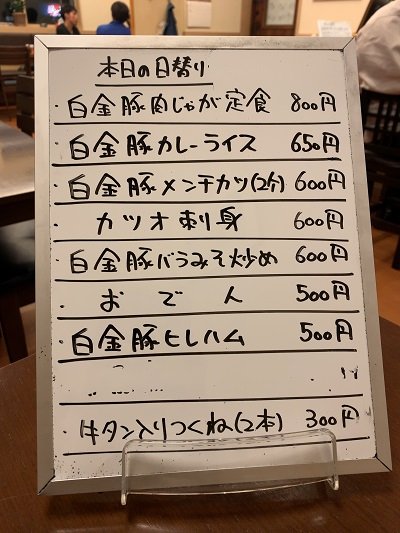 本日の日替り
・白金豚肉じゃが定食 800円
・白金豚カレーライス 650円
・白金豚メンチカツ(2ケ) 600円
・カツオ刺身 600円
・白金豚バラみそ炒め 600円
・おでん 500円
・白金豚ヒレハム 500円
・牛タン入りつくね(2本) 300円